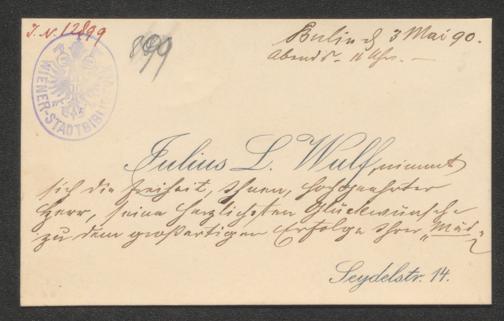 J. N. 12899
899
WIENER-STADTBIBLIOTHEK
Berlin d 3 Mai 90.
Abends. 11 Uhr. —
Julius L. Wulf, nimmt
sich die Freiheit, Ihnen, hochgeehrter
Herr, seine herzlichsten Glückwünsche
zu dem großartigen Erfolge Ihrer „Mäd-
Seydelstr. 14.